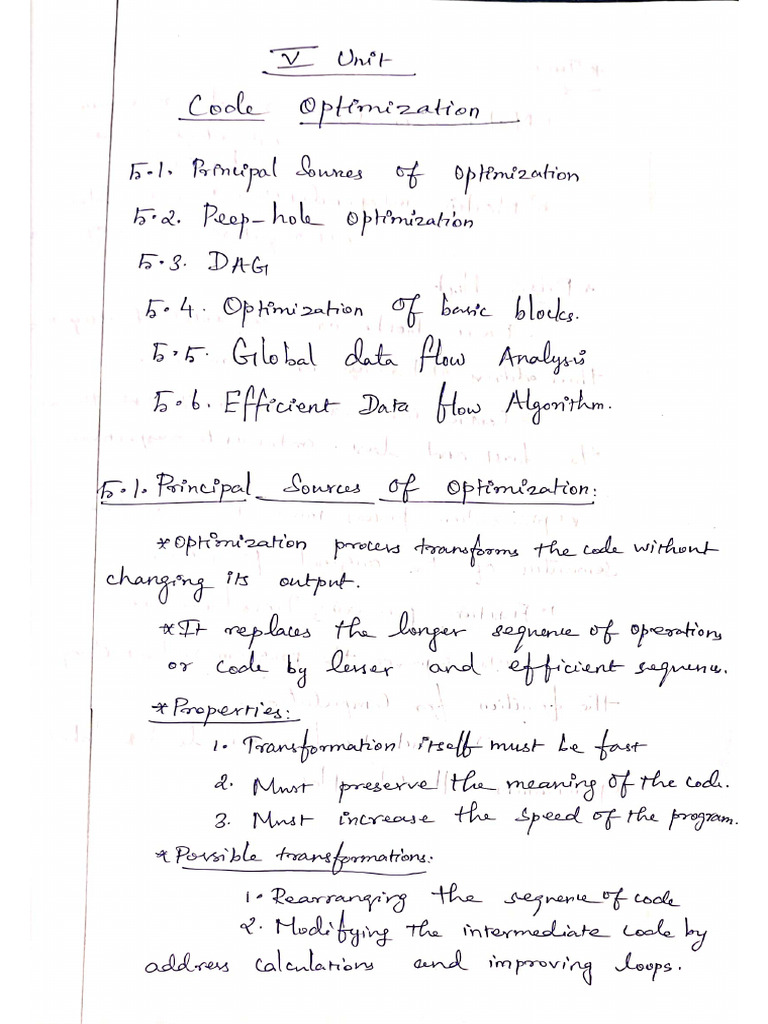 V Unit
Code Optimization
5.1. Principal Sources of Optimization
5.2. Peep-hole Optimization
5.3. DAG
5.4. Optimization of basic blocks.
5.5. Global data flow Analysis
5.6. Efficient Data flow Algorithm.
5.1. Principal Sources of Optimization:
*Optimization process transforms the code without
changing its output.
*It replaces the longer sequence of operations
or code by lesser and efficient sequence.
*Properties:
1. Transformation itself must be fast
2. Must preserve the meaning of the code.
3. Must increase the speed of the program.
*Possible transformations:
1. Rearranging the sequence of code
2. Modifying the intermediate code by
address calculations and improving loops.